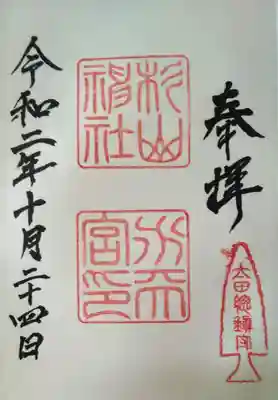 奉拝
太田總鎮守
杉山神社
水天宮印
令和二年十月二十四日